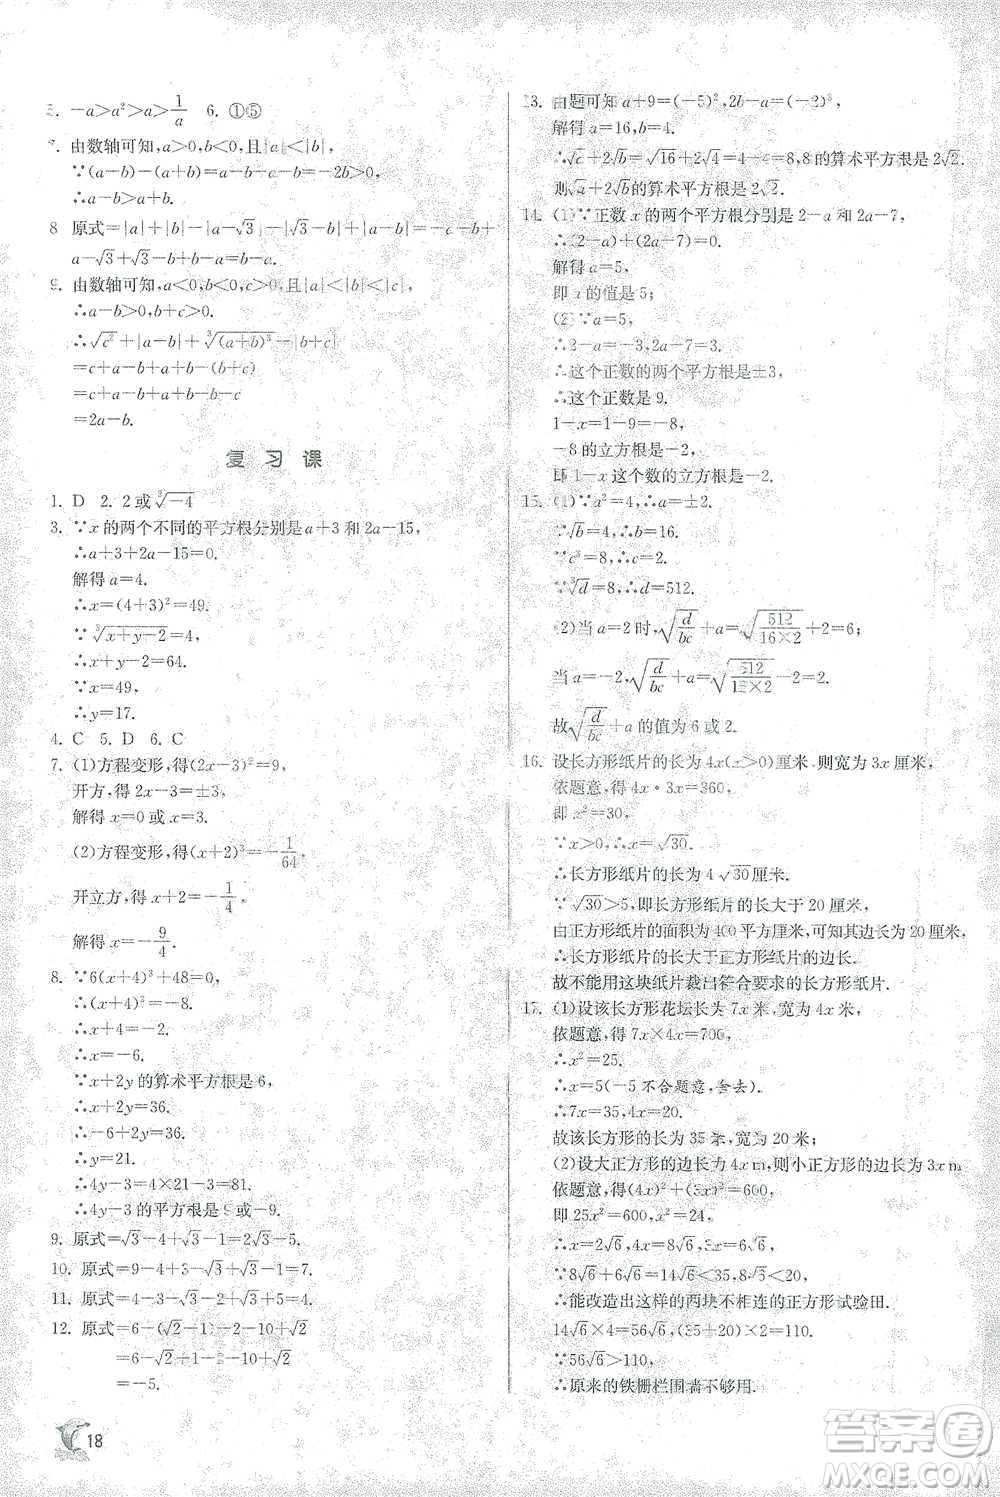 5. －a＞a²＞a＞1/a　6. ①⑤
7. 由数轴可知,a＞0,b＜0,且|a|＜|b|,
∵(a－b)－(a＋b)＝a－b－a－b＝－2b＞0,
∴a－b＞a＋b.
8 原式＝|a|＋|b|－|a－√3|－|√3－b|＝－a－b＋
a－√3＋√3－b＝－2b.
9. 由数轴可知,a＜0,b＜0,c＞0,且|a|＜|b|＜|c|,
∴a－b＞0,a＋b＜0.
∴√c²＋|a－b|＋∛(a＋b)³－|b－c|
＝c＋a－b＋a＋b－(c－b)
＝c＋a－b＋a＋b－c＋b
＝2a－b.
复 习 课
1. D　2. 2 或∛－4
3. ∵x 的两个不同的平方根分别是 a＋3 和 2a－15,
∴a＋3＋2a－15＝0.
解得 a＝4.
∴x＝(4＋3)²＝49.
∵∛x＋y－2＝4,
∴x＋y－2＝64.
∵x＝49,
∴y＝17.
4. C　5. D　6. C
7. (1)方程变形,得(2x－3)²＝9,
开方,得 2x－3＝±3,
解得 x＝0 或 x＝3.
(2)方程变形,得(x＋2)³＝－1/64,
开立方,得 x＋2＝－1/4,
解得 x＝－9/4.
8. ∵6(x＋4)³＋48＝0,
∴(x＋4)³＝－8.
∴x＋4＝－2.
∴x＝－6.
∵x＋2y 的算术平方根是 6,
∴x＋2y＝36.
∴－6＋2y＝36.
∴y＝21.
∴4y－3＝4×21－3＝81.
∴4y－3 的平方根是 9 或－9.
9. 原式＝√3－4－√3－1＝－5.
10. 原式＝9－4＋3－√3＋√3－1＝7.
11. 原式＝4－3－√3－2＋√3＋5＝4.
12. 原式＝6－(√2－1)－2－10＋√2
＝6－√2＋1－2－10＋√2
＝－5.
18
13. 由题可知 a＋9＝(－5)²,2b－a＝(－2)³,
解得 a＝16,b＝4.
∴√a＋2√b＝√16＋2√4＝4＋4＝8,8 的算术平方根是 2√2.
则√a＋2√b的算术平方根是 2√2.
14. (1)∵正数 x 的两个平方根分别是 2－a 和 2a－7,
∴(2－a)＋(2a－7)＝0.
解得 a＝5,
即 a 的值是 5;
(2)∵a＝5,
∴2－a＝－3,2a－7＝3.
∴这个正数的两个平方根是±3,
∴这个正数是 9.
1－x＝1－9＝－8,
－8 的立方根是－2.
即 1－x 这个数的立方根是－2.
15. (1)∵a²＝4,∴a＝±2.
∵√b＝4,∴b＝16.
∵∛c＝8,∴c＝2.
∵∛d＝8,∴d＝512.
(2)当 a＝2 时,√d/bc＋a＝√512/16×2＋2＝6;
当 a＝－2,√d/bc＋a＝√512/16×2－2＝2.
故√d/bc＋a 的值为 6 或 2.
16. 设长方形纸片的长为 4x(x＞0)厘米,则宽为 3x 厘米,
依题意,得 4x·3x＝360,
即 x²＝30,
∵x＞0,∴x＝√30.
∴长方形纸片的长为 4√30厘米.
∵√30＞5,即长方形纸片的长大于 20 厘米,
由正方形纸片的面积为 400 平方厘米,可知其边长为 20 厘米,
∴长方形纸片的长大于正方形纸片的边长.
故不能用这块纸片裁出符合要求的长方形纸片.
17. (1)设该长方形花坛长为 7x 米,宽为 4x 米,
依题意,得 7x×4x＝700,
∴x²＝25.
∴x＝5(－5 不合题意,舍去).
∴7x＝35,4x＝20.
故该长方形的长为 35 米,宽为 20 米;
(2)设大正方形的边长为 4x m,则小正方形的边长为 3x m,
依题意,得(4x)²＋(3x)²＝600,
即 25x²＝600,x²＝24.
∴x＝2√6,4x＝8√6,3x＝6√6.
∵8√6＋6√6＝14√6＜35,8√6＜20,
∴能改造出这样的两块不相连的正方形试验田.
14√6×4＝56√6,(35＋20)×2＝110.
∵56√6＞110,
∴原来的铁栅栏围墙不够用.
答案圈
MXQE.COM